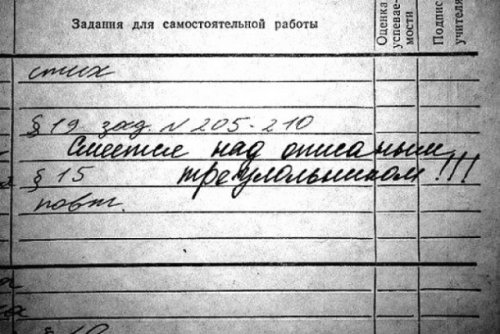 Задания для самостоятельной работы
Оценка успевае-мости
Подпис учителя
стих
§ 19 зад. N 205-210
Смеется над описаным
§ 15 треугольником!!!
повт.
§ 19